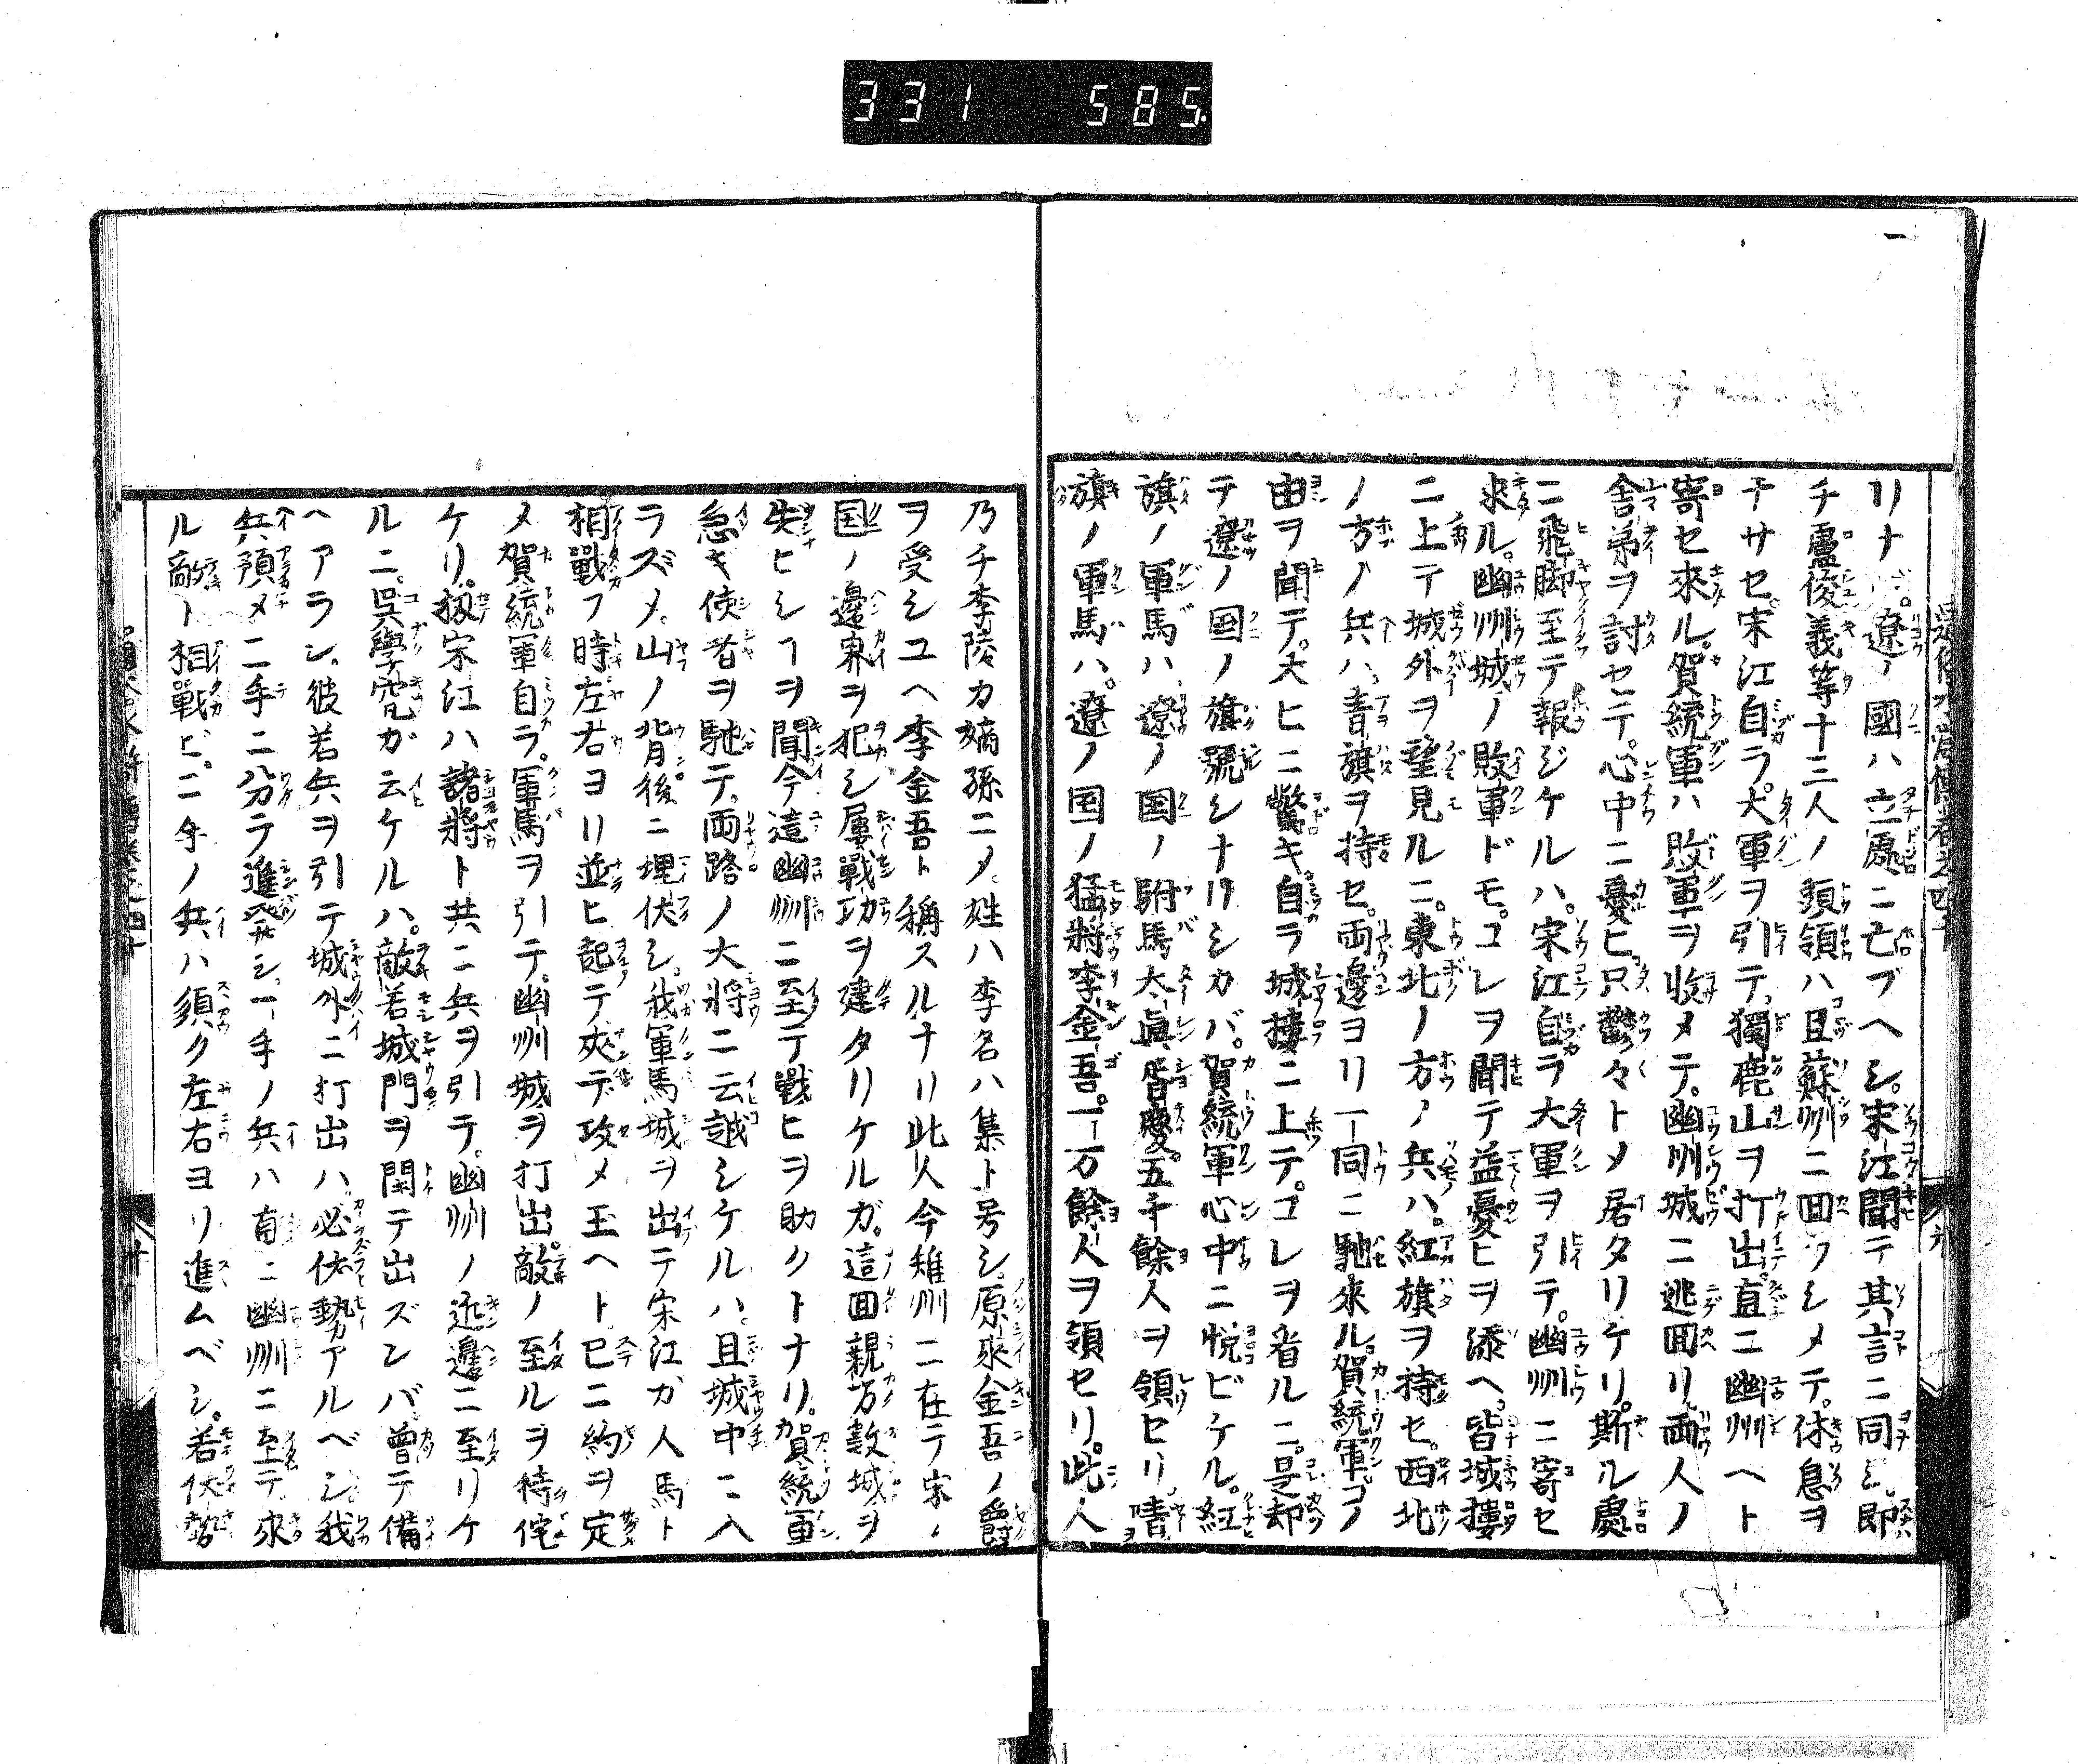 331 585
リナ。遼ノ國ハ立處ニ亡ブヘシ。宋江聞テ其言ニ同ジ。即
チ盧俊義等十三人ノ頭領ハ。且蘇州ニ回ラシメテ。休息ヲ
ナサセ。宋江自ラ。大軍ヲ引テ。獨鹿山ヲ打出。直ニ幽州ヘト
寄セ來ル。賀統軍ハ敗軍ヲ收メテ。幽州城ニ逃回リ。両人ノ
舍弟ヲ討セテ。心中ニ憂ヒ。只鬱々トメ居タリケリ。斯ル處
ニ飛脚至テ報ジケルハ。宋江自ラ大軍ヲ引テ。幽州ニ寄セ
來ル。幽州城ノ敗軍ドモ。コレヲ聞テ益憂ヒヲ添ヘ。皆城樓
ニ上テ城外ヲ望見ルニ。東北ノ方ノ兵ハ。紅旗ヲ持セ。西北
ノ方ノ兵ハ。青旗ヲ持セ。両邊ヨリ一同ニ馳來ル。賀統軍コノ
由ヲ聞テ。大ヒニ驚キ。自ラ城樓ニ上テ。コレヲ看ルニ。是却
テ遼ノ国ノ旗號シナリシカバ。賀統軍心中ニ悦ビケル。紅
旗ノ軍馬ハ。遼ノ国ノ駙馬太眞胥慶。五千餘人ヲ領セリ。青
旗ノ軍馬ハ。遼ノ国ノ猛將李金吾。一万餘人ヲ領セリ。此人
乃チ李陵カ嫡孫ニメ。姓ハ李名ハ集ト号シ。原來金吾ノ爵
ヲ受シユヘ李金吾ト稱スルナリ此人今雄州ニ在テ宋ノ
国ノ邊界ヲ犯シ屡戰功ヲ建タリケルガ。這回親方數城ヲ
失ヒシヿヲ聞今這幽州ニ至テ戰ヒヲ助クトナリ。賀統軍
急キ使者ヲ馳テ。両路ノ大將ニ云誡シケルハ。且城中ニ入
ラズメ。山ノ背後ニ埋伏シ。我軍馬城ヲ出テ宋江カ人馬ト
相戰フ時左右ヨリ並ヒ起テ夾テ攻メ玉ヘト。已ニ約ヲ定
メ賀統軍自ラ。軍馬ヲ引テ。幽州城ヲ打出。敵ノ至ルヲ待侘
ケリ。扨宋江ハ諸將ト共ニ兵ヲ引テ。幽州ノ近邊ニ至リケ
ルニ。呉學究ガ云ケルハ。敵若城門ヲ閉テ出ズンバ曾テ備
ヘアラシ。彼若兵ヲ引テ城外ニ打出ハ必伏勢アルベシ。我
兵預メ二手ニ分ラ進發シ。一手ノ兵ハ直ニ幽州ニ至テ。來
ル敵ト相戰ビ。二手ノ兵ハ須ク左右ヨリ進ムベシ。若伏勢